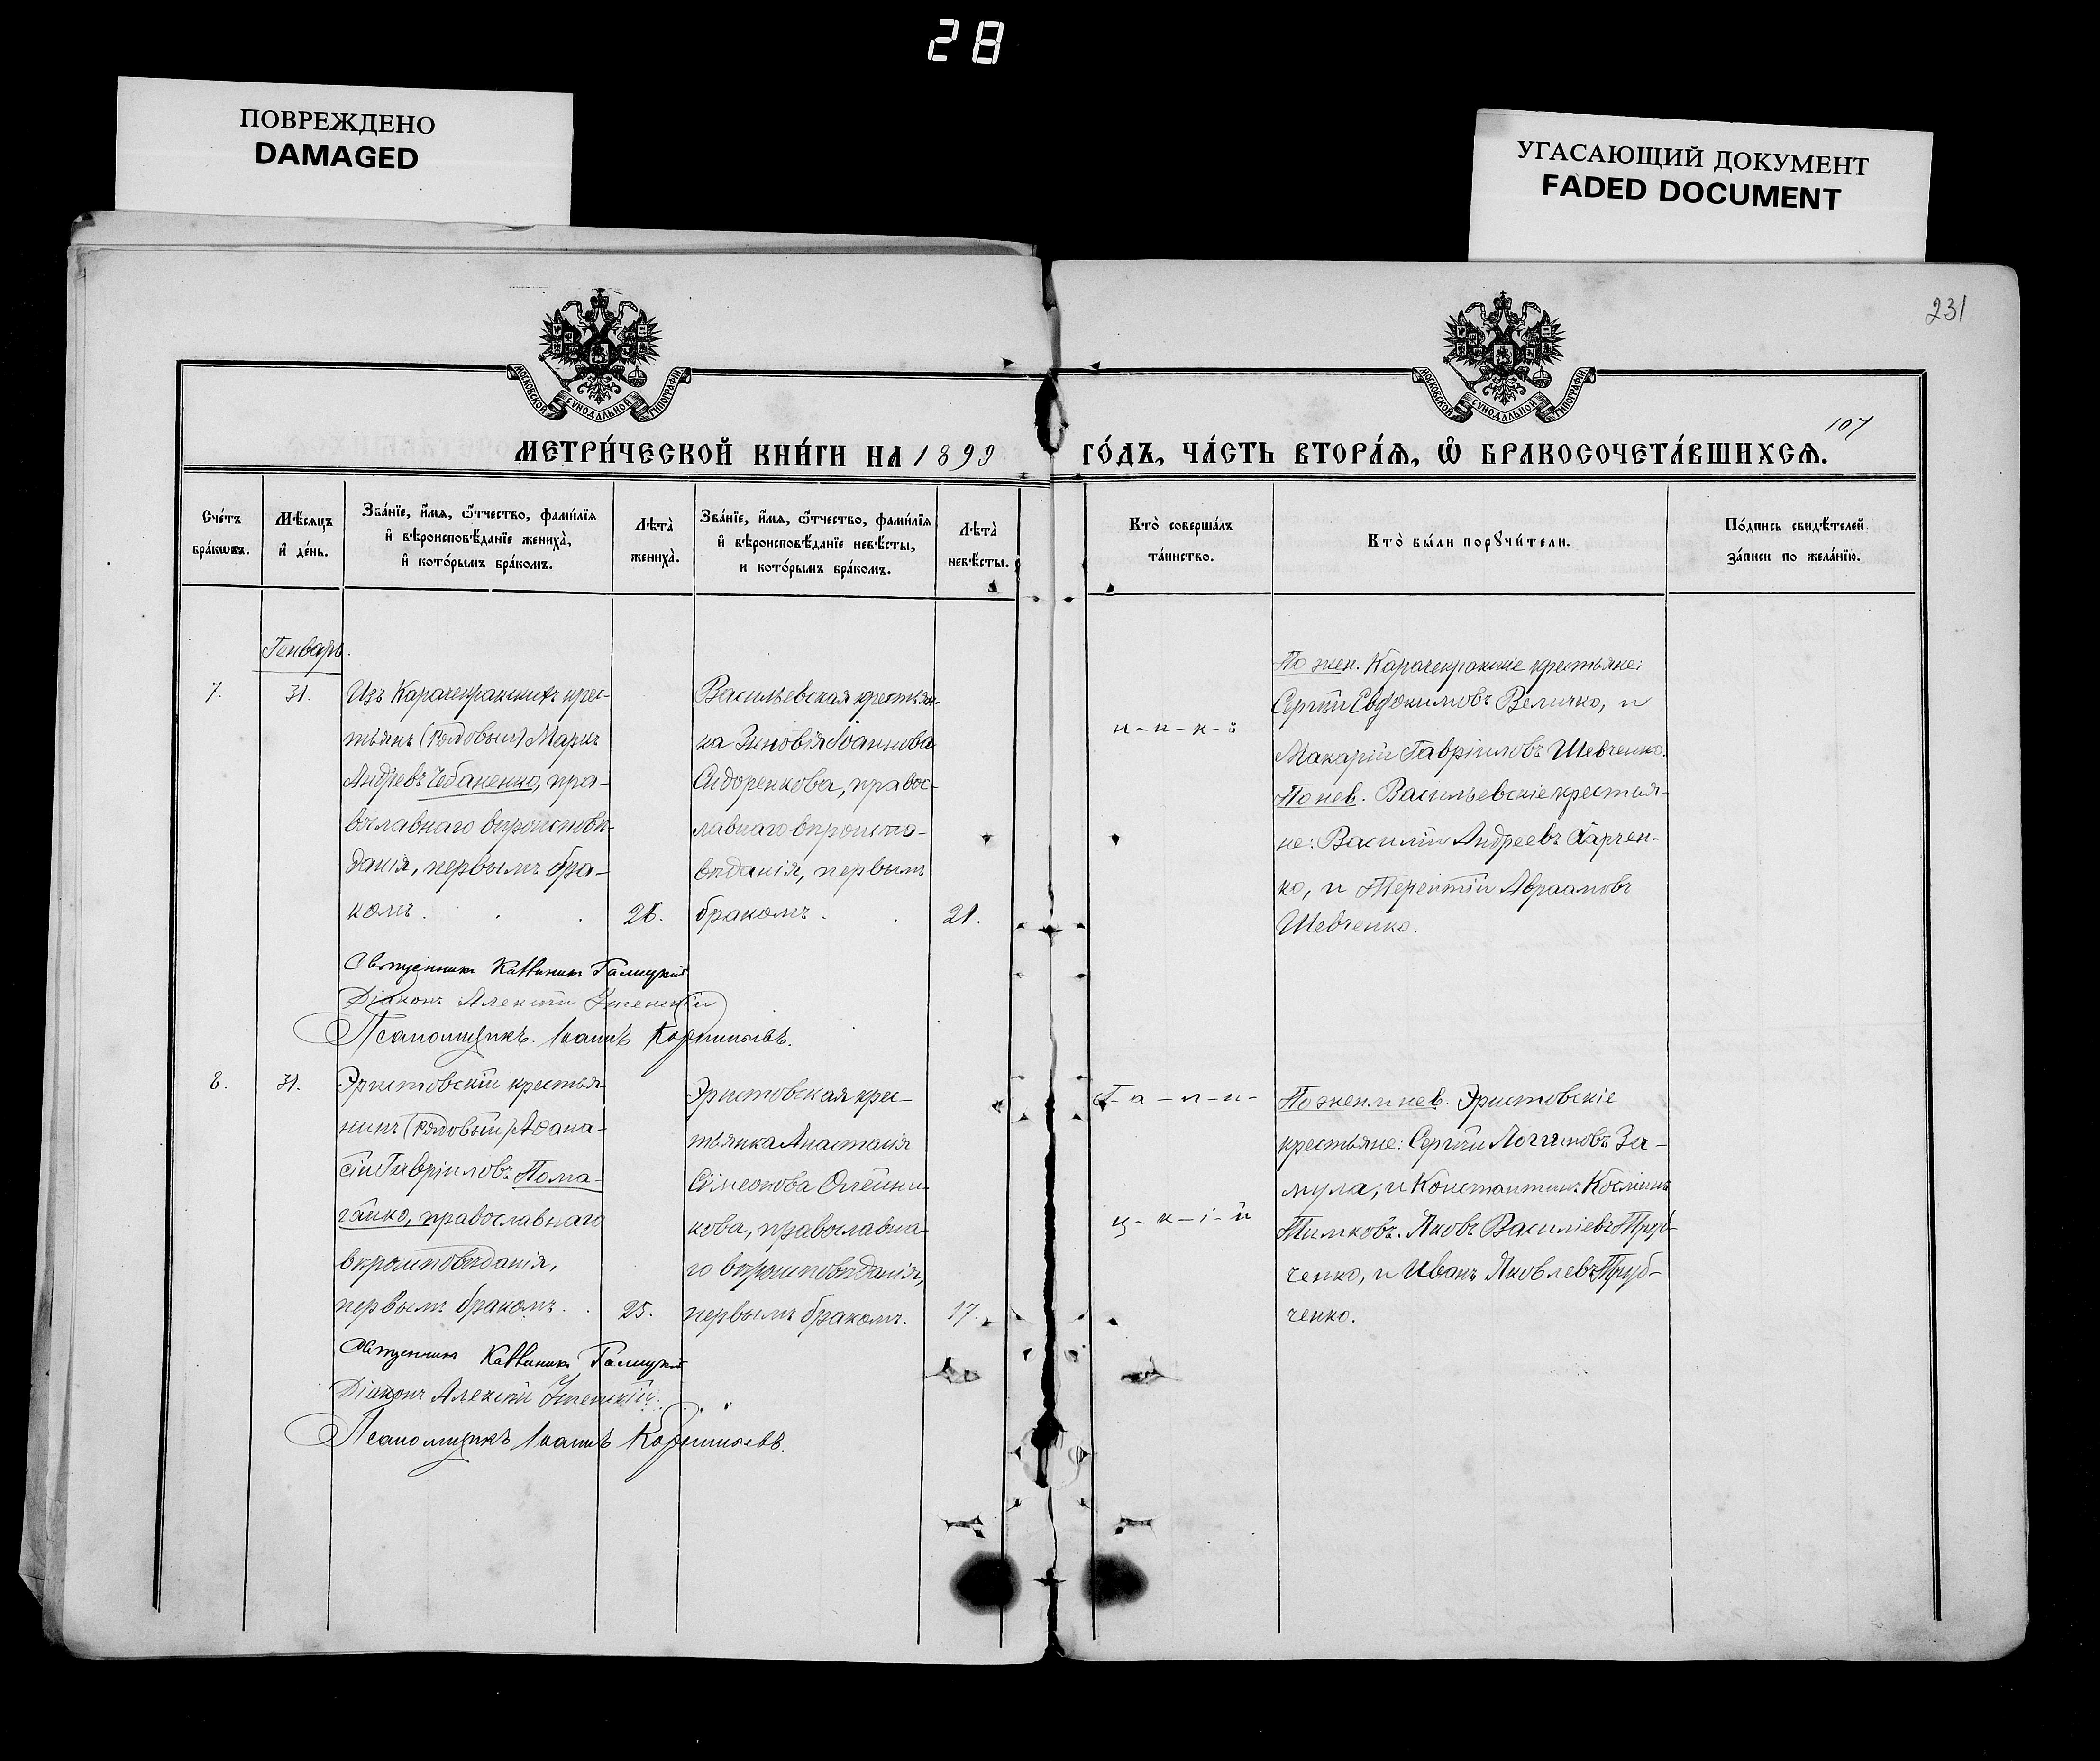 28
ПОВРЕЖДЕНО
DAMAGED
УГАСАЮЩИЙ ДОКУМЕНТ
FADED DOCUMENT
231
МОСКОВСКОЙ СѴНОДАЛЬНОЙ ТИПОГРАФІИ
МОСКОВСКОЙ СѴНОДАЛЬНОЙ ТИПОГРАФІИ
107
МЕТРИ́ЧЕСКОЙ КНИ́ГИ НА 1899 ГО́ДЪ, ЧА́СТЬ ВТОРА́Ѧ, Ѽ БРАКОСОЧЕТА́ВШИХСѦ.
Сче́тъ
бра́кѡвъ.
Мѣ́сяцъ
и҆ де́нь.
Зва́нїе, и҆́мя, ѻ҆́тчество, фами́лїя
и҆ вѣроисповѣ́данїе жениха̀,
и҆ кото́рымъ бра́комъ.
Лѣта̀
жениха̀.
Зва́нїе, и҆́мя, ѻ҆́тчество, фами́лїя
и҆ вѣроисповѣ́данїе невѣ́сты,
и кото́рымъ бра́комъ.
Лѣта̀
невѣ́сты.
Кто̀ соверша́лъ
та́инство.
Кто̀ бы́ли порꙋчи́тели.
По́дпись свидѣ́телей
за́писи по жела́нїю.
Генварь.
7.
31.
Изъ Карачекракскихъ крес-
тьянъ (Рядовый) Маркъ
Андреевъ Чебаненко, пра-
вославнаго вѣроисповѣ-
данія, первымъ бра-
комъ.
26.
Васильевская крестьян-
ка Зиновія Іоаннова
Сидоренкова, правос-
лавнаго вѣроиспо-
вѣданія, первымъ
бракомъ.
21.
По жен. Карачекракскіе крестьяне:
Сергій Евдокимовъ Величко, и
Макарій Гавріиловъ Шевченко.
По нев. Васильевскіе крестья-
не: Василій Андреевъ Харчен-
ко, и Терентій Авраамовъ
Шевченко.
Священникъ Каллиникъ Галицкій
Діаконъ Алексій
Псаломщикъ. Іоаннъ
8.
31.
Эристовскій крестья-
нинъ (Рядовый) Аѳана-
сій Гавріиловъ Пома-
гайко, православнаго
вѣроисповѣданія,
первымъ бракомъ.
25.
Эристовская крес-
тьянка Анастасія
Сімеонова Олейни-
кова, православна-
го вѣроисповѣданія,
первымъ бракомъ.
17.
Г-а-л-и-
ц-к-і-й
По жен. и нев. Эристовскіе
крестьяне: Сергій Логгиновъ За-
мула, и Константинъ Косминъ
Тимковъ. Яковъ Василіевъ Труб-
ченко, и Иванъ Яковлевъ Труб-
ченко.
Священникъ Каллиникъ Галицкій
Діаконъ Алексій
Псаломщикъ Іоаннъ